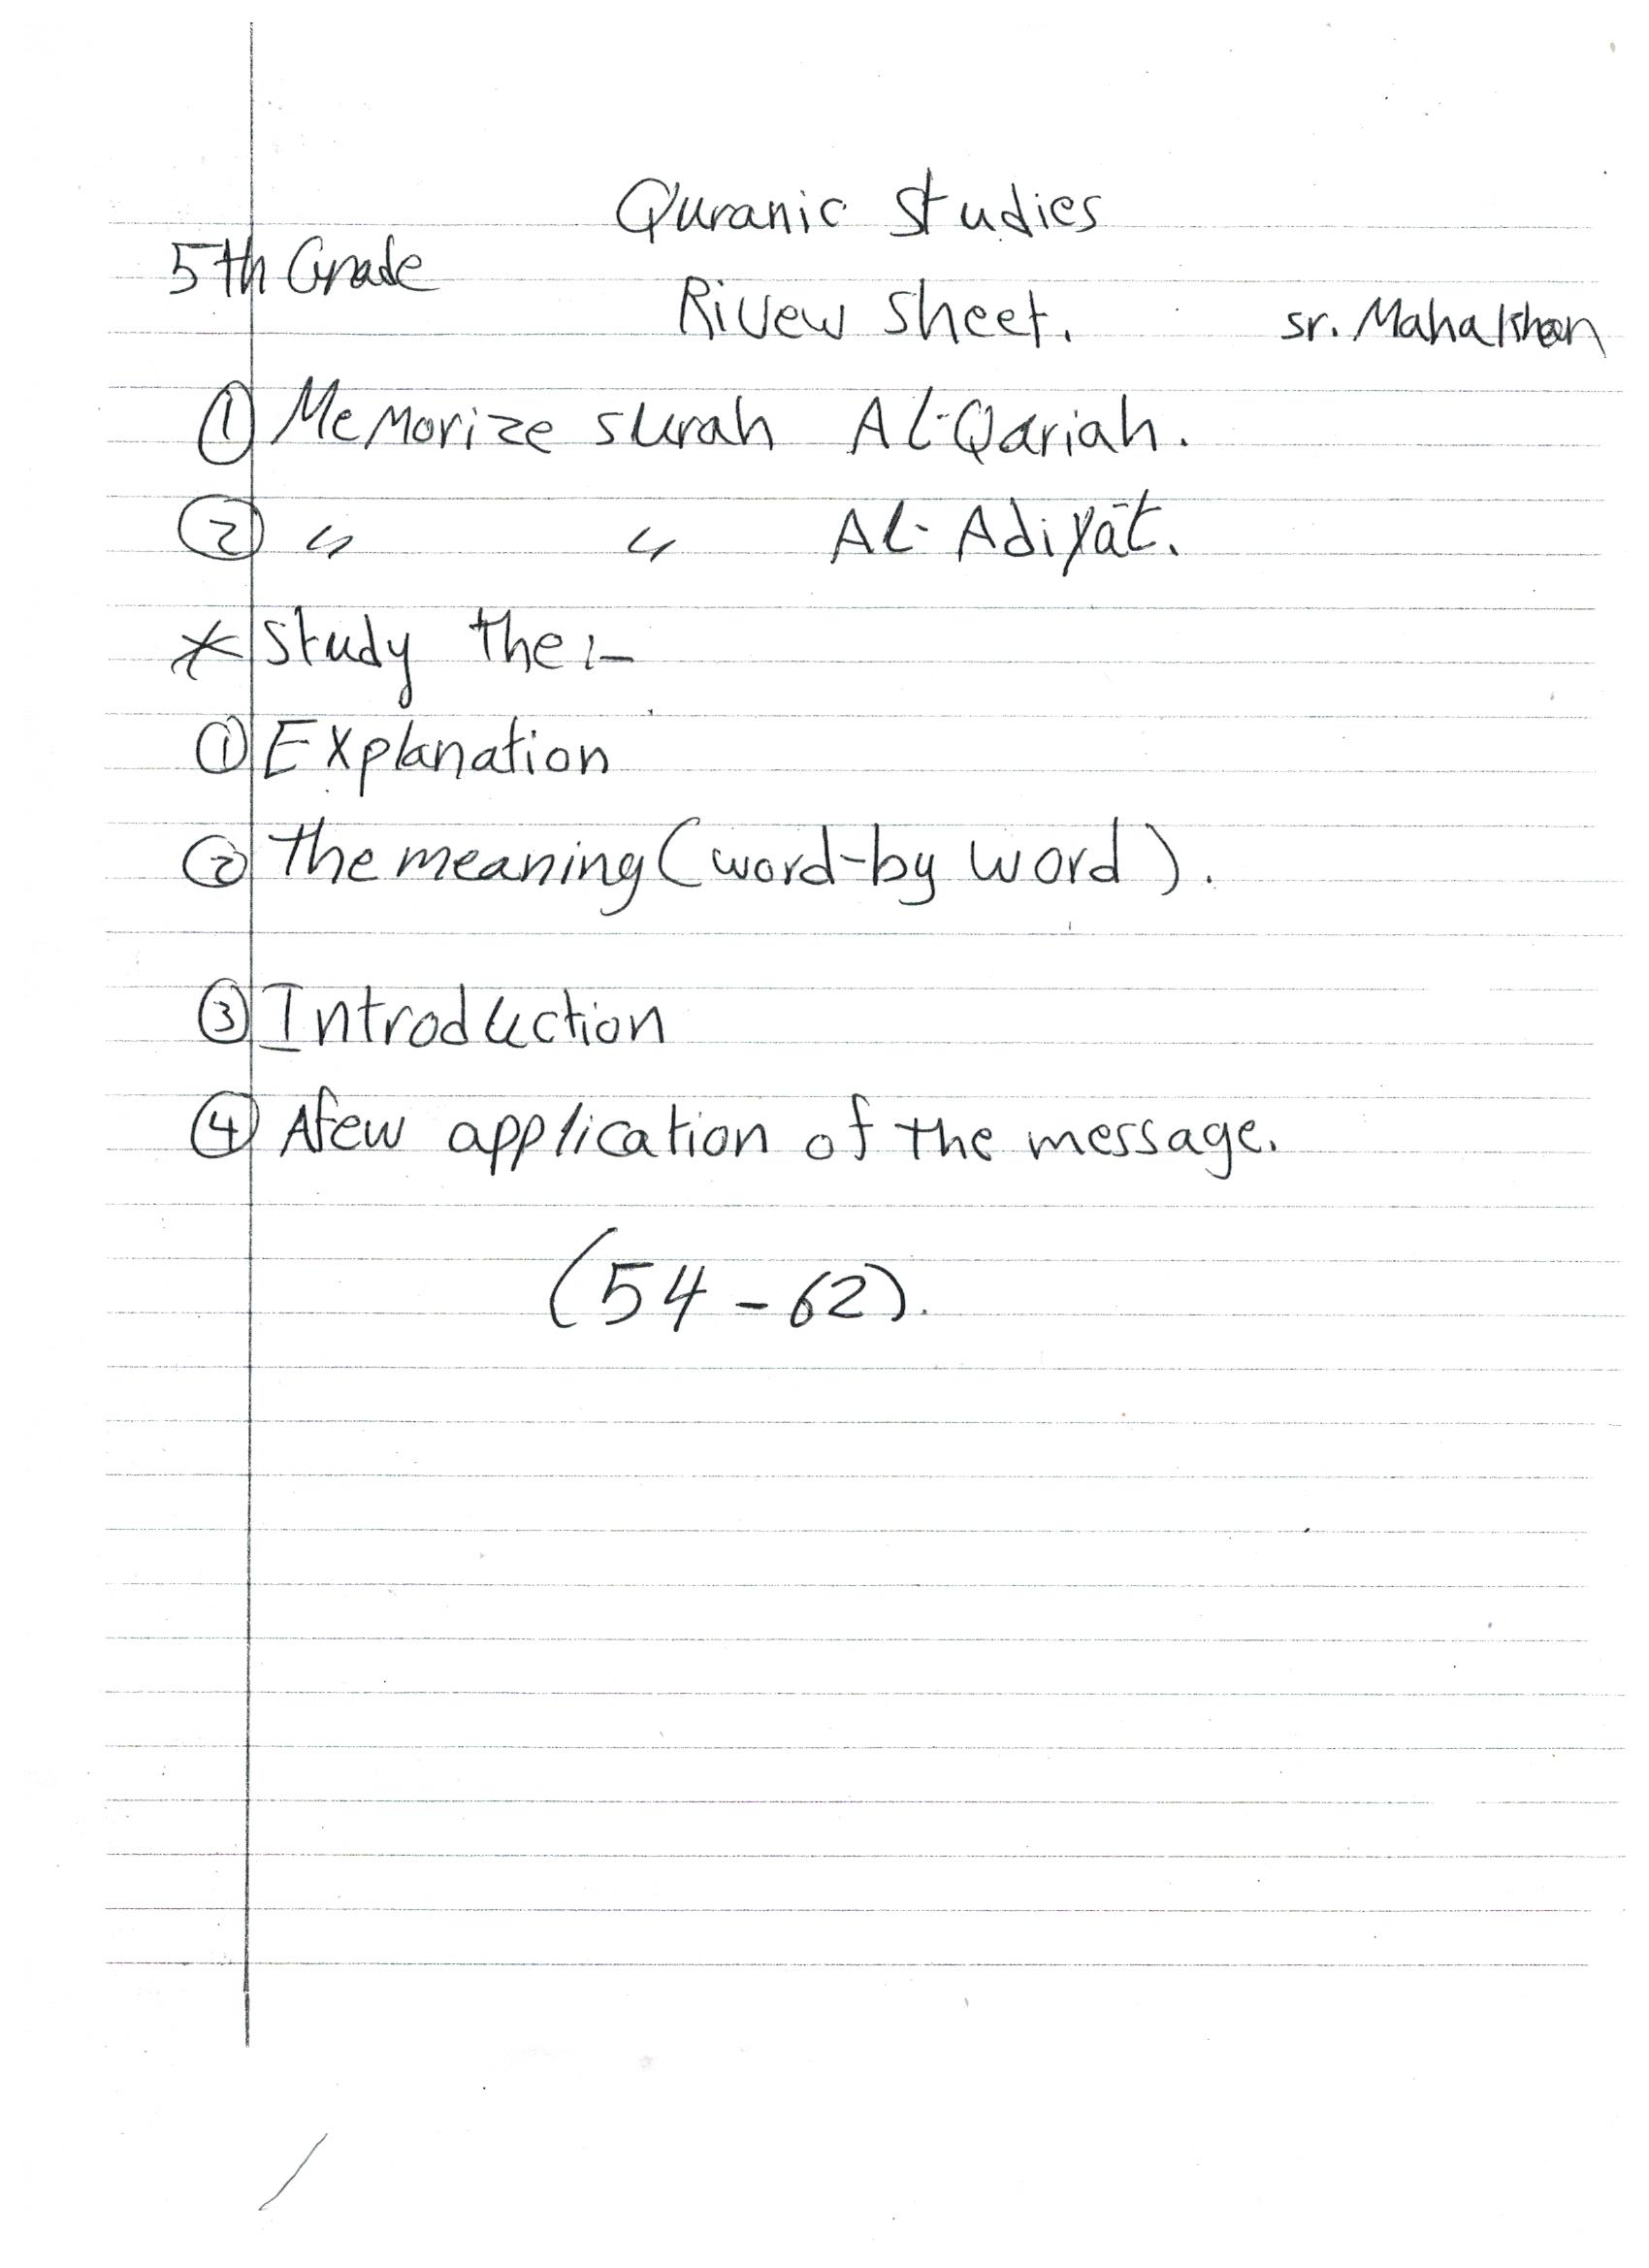 Quranic Studies
5th Grade
Rivew sheet.
sr. Maha Khan
① Memorize surah Al-Qariah.
② " " Al-Adiyāt.
* Study the:-
① Explanation
② The meaning (word-by word).
③ Introduction
④ Afew application of the message.
(54-62).